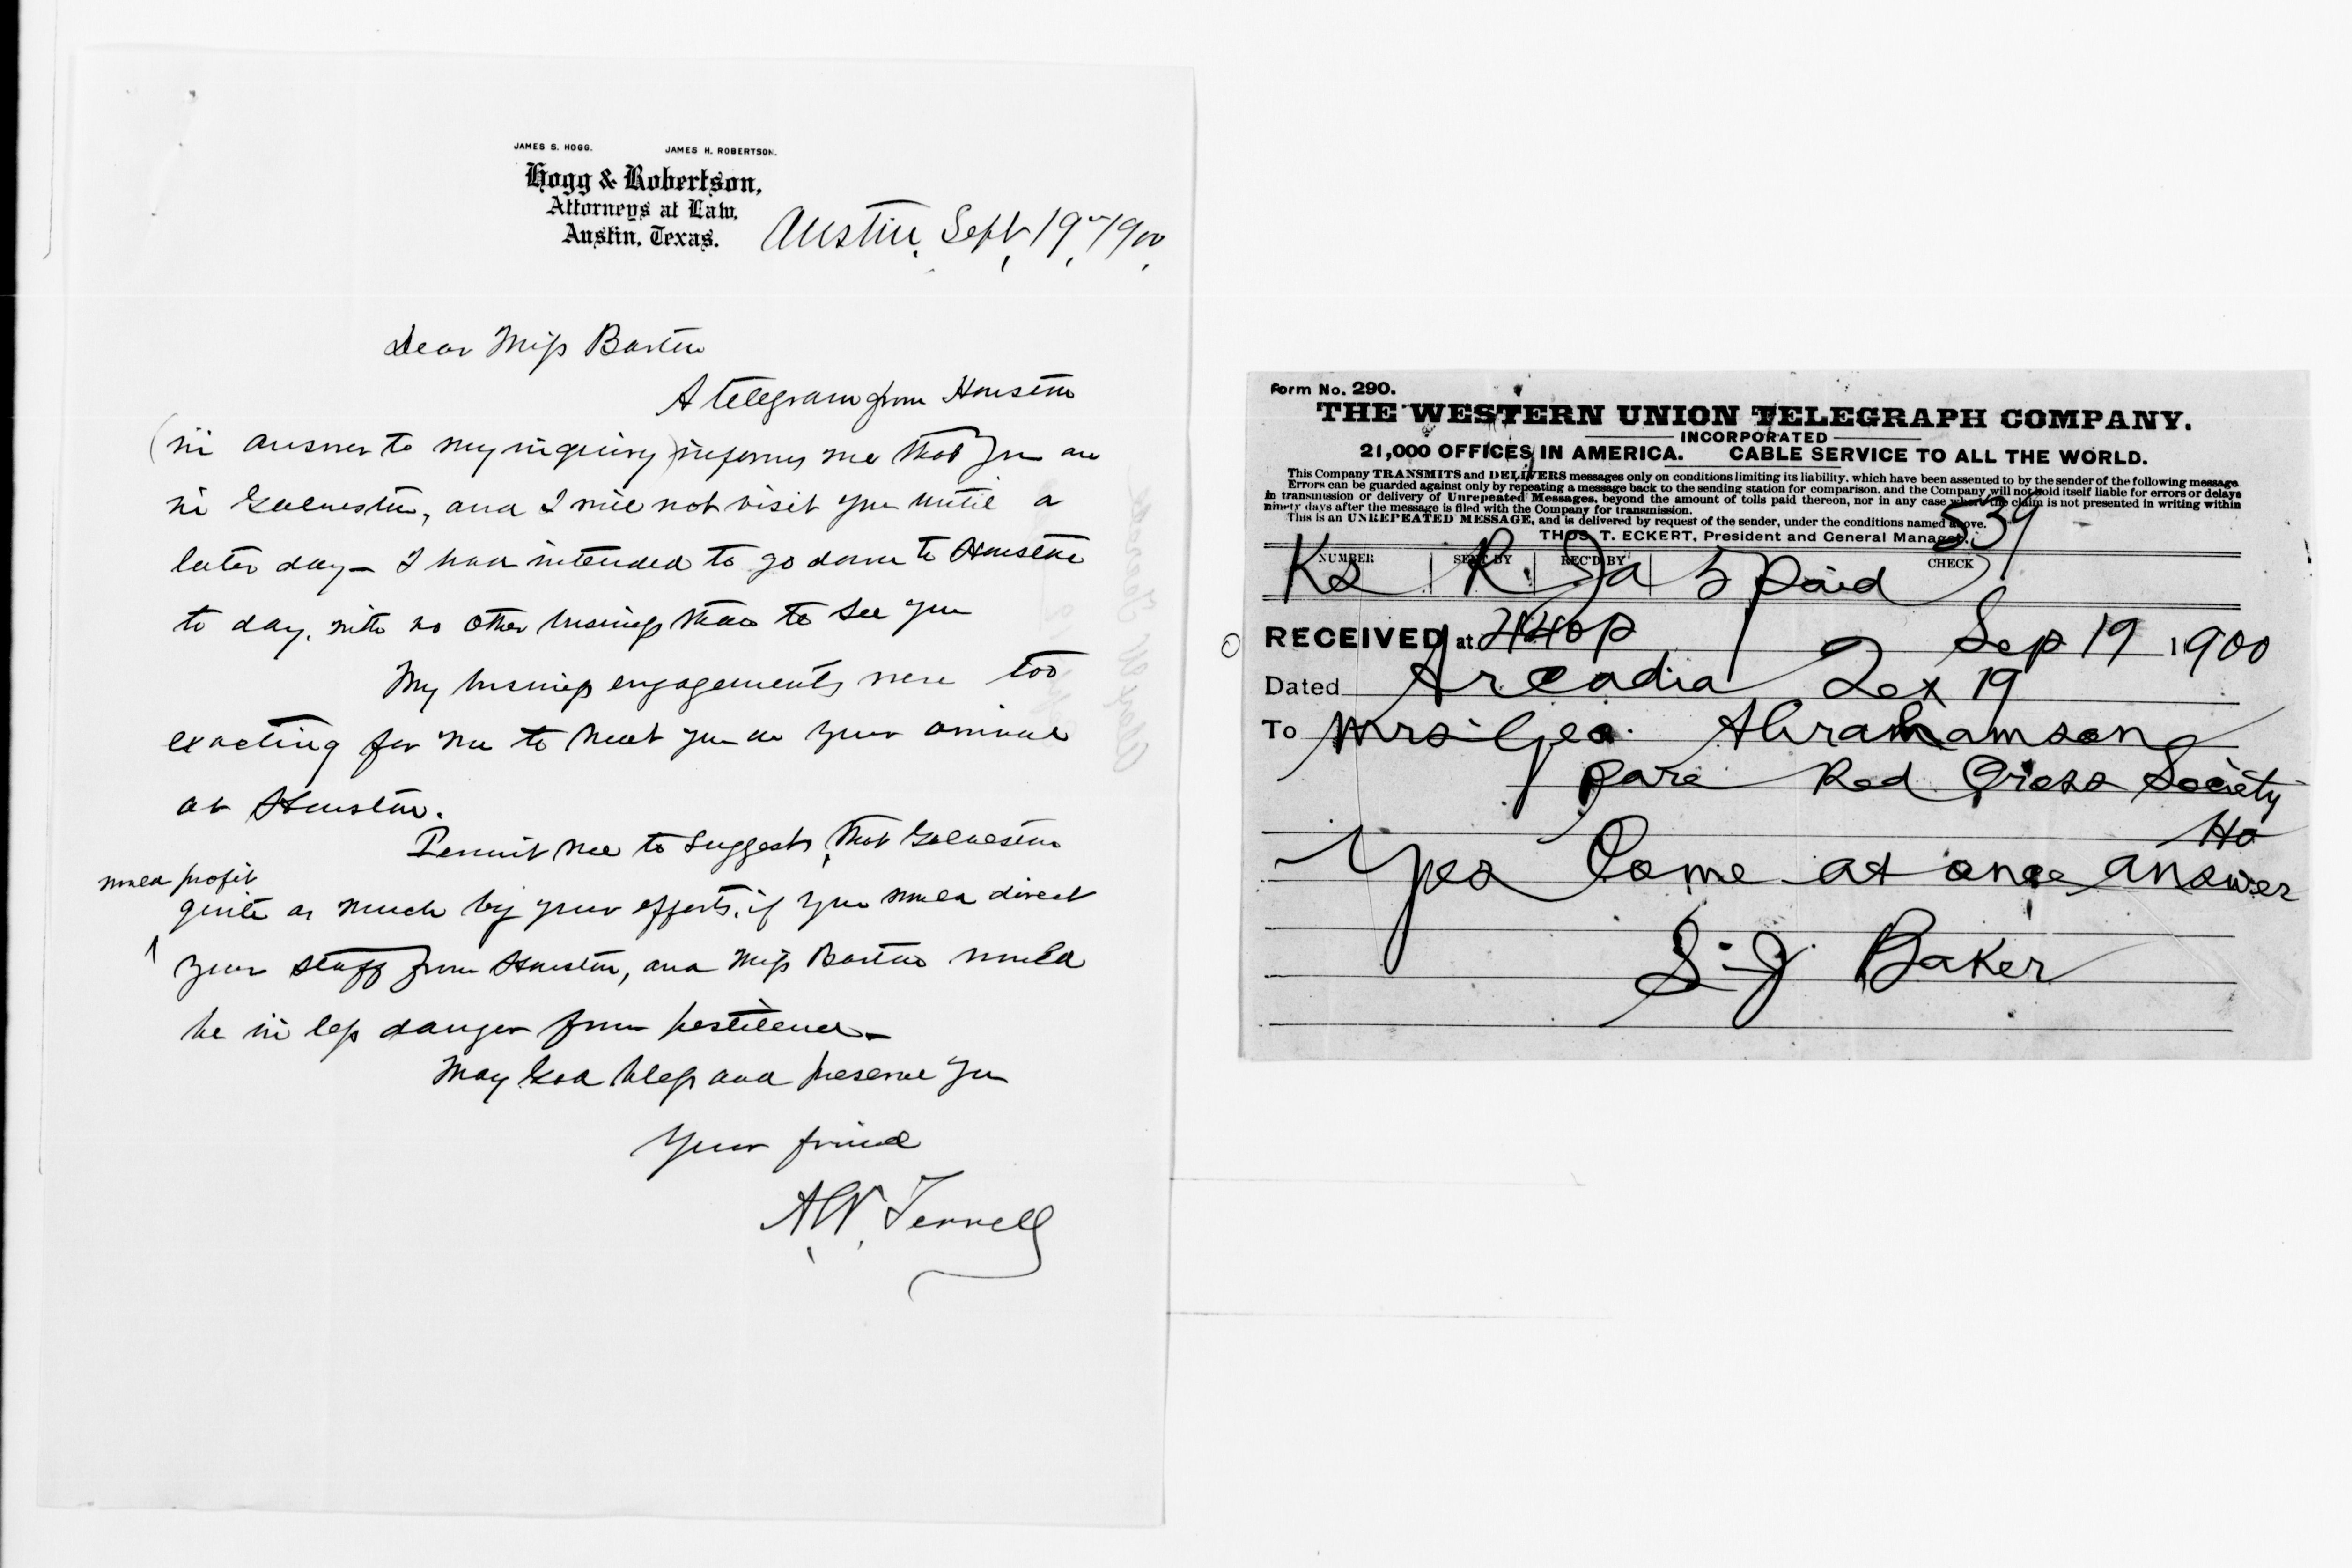 JAMES S. HOGG. JAMES H. ROBERTSON.
Hogg & Robertson,
Attorneys at Law,
Austin, Texas.
Austin, Sept, 19, 1900,
Dear Miss Barton
A telegram from Houston
(in answer to my inquiry) informs me that you are
in Galveston, and I will not visit you until a
later day — I had intended to go down to Houston
to day, with no other business than to see you
My business engagements were too
exacting for me to meet you on your arrival
at Houston.
Permit me to suggest, that Galveston
would profit
quite as much by your efforts, if you would direct
your staff from Houston, and Miss Barton would
be in less danger from pestilence —
May God bless and preserve you
Your friend
A.W. Terrell
Form No. 290.
THE WESTERN UNION TELEGRAPH COMPANY.
INCORPORATED
21,000 OFFICES IN AMERICA. CABLE SERVICE TO ALL THE WORLD.
This Company TRANSMITS and DELIVERS messages only on conditions limiting its liability, which have been assented to by the sender of the following message
Errors can be guarded against only by repeating a message back to the sending station for comparison, and the Company will not hold itself liable for errors or delays
in transmission or delivery of Unrepeated Messages, beyond the amount of tolls paid thereon, nor in any case where the claim is not presented in writing within
ninety days after the message is filed with the Company for transmission.
This is an UNREPEATED MESSAGE, and is delivered by request of the sender, under the conditions named above.
539
THOS. T. ECKERT, President and General Manager.
NUMBER SENT BY REC'D BY CHECK
5 Paid
RECEIVED at 440p Sep 19 1900
Dated Arcadia Tex 19
To Mrs Geo. Abrahamson
Care Red Cross Society
Ho
Yes Come at once answer
S. J Baker